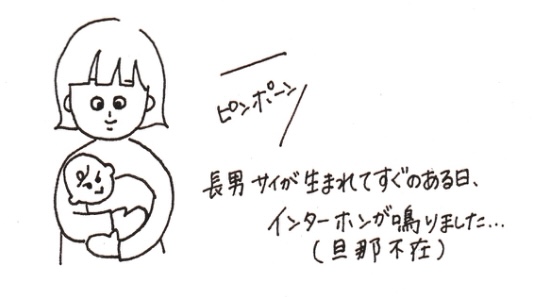 ピンポーン
長男 サイが生まれてすぐのある日、
インターホンが鳴りました…
(旦那不在)